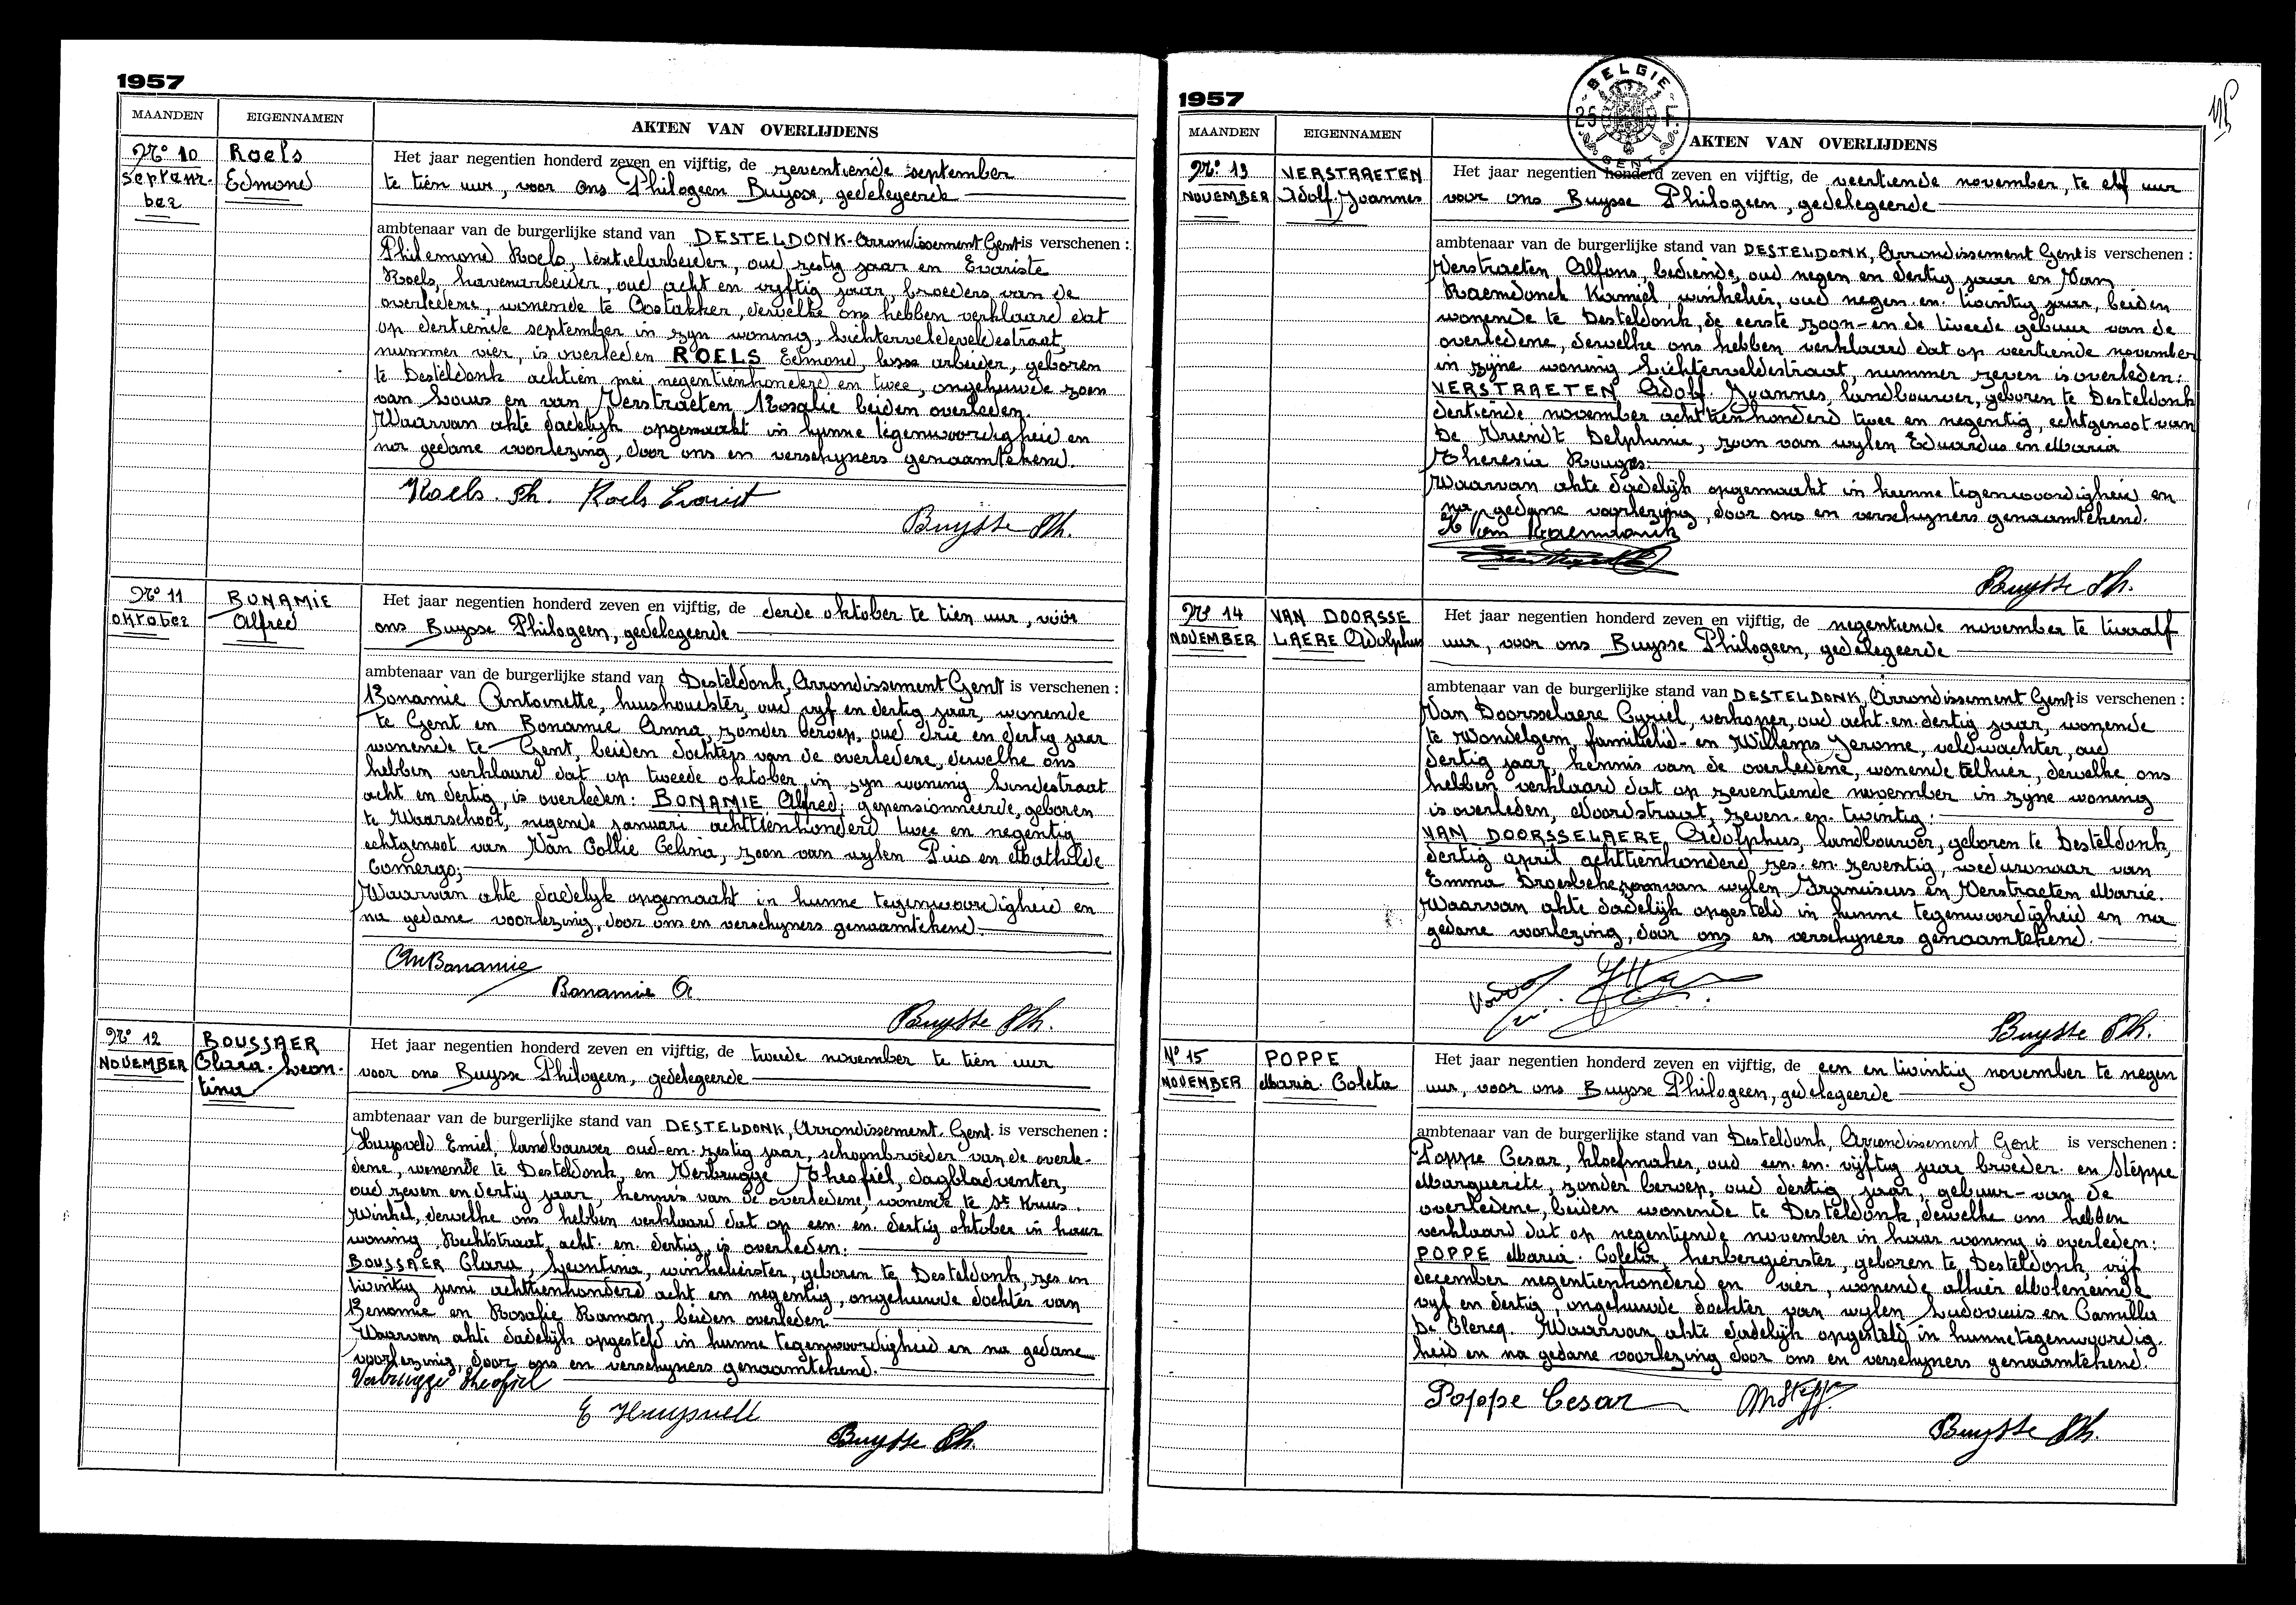 1957
MAANDEN EIGENNAMEN AKTEN VAN OVERLIJDENS
Nr 10
Septem-
ber
Roels
Edmond
Het jaar negentien honderd zeven en vijftig, de zeventiende september
te tien uur, voor ons Philogeen Buysse, gedelegeerde
ambtenaar van de burgerlijke stand van DESTELDONK-Arrondissement Gent is verschenen :
Philemond Roels, textielarbeider, oud zestig jaar en Evariste
Roels, havenarbeider, oud acht en vyftig jaar, broeders van de
overledene, wonende te Oostakker, dewelke ons hebben verklaard dat
op dertiende september in zyn woning, Lichterveldeveldestraat,
nummer vier, is overleden ROELS Edmond, losse arbeider, geboren
te Desteldonk achtien mei negentienhonderd en twee, ongehuwde zoon
van Louis en van Verstraeten Rosalie beiden overleden.
Waarvan akte dadelyk opgemaakt in hunne tegenwoordigheid en
na gedane voorlezing, door ons en verschyners genaamtekend.
Roels. Ph. Roels Evarist
Buysse Ph.
Nr 11
oktober
BONAMIE
Alfred
Het jaar negentien honderd zeven en vijftig, de derde oktober te tien uur, vóór
ons Buysse Philogeen, gedelegeerde
ambtenaar van de burgerlijke stand van Desteldonk, Arrondissement Gent is verschenen :
Bonamie Antoinette, huishoudster, oud vyf en dertig jaar, wonende
te Gent en Bonamie Anna, zonder beroep, oud drie en dertig jaar
wonende te Gent, beiden dochters van de overledene, dewelke ons
hebben verklaard dat op tweede oktober in zyn woning Lindestraat
acht en dertig, is overleden: BONAMIE Alfred, gepensionneerde, geboren
te Waarschoot, negende januari achttienhonderd twee en negentig
echtgenoot van Van Collie Celina, zoon van wylen Pius en Mathilde
Gomergo;
Waarvan akte dadelyk opgemaakt in hunne tegenwoordigheid en
na gedane voorlezing, door ons en verschyners genaamtekend.
An Bonamie
Bonamie A.
Buysse Ph.
Nr 12
NOVEMBER
BOUSSAER
Clara. Leon-
tina
Het jaar negentien honderd zeven en vijftig, de tweede november te tien uur
voor ons Buysse Philogeen, gedelegeerde
ambtenaar van de burgerlijke stand van DESTELDONK, Arrondissement. Gent. is verschenen :
Huysveld Emiel, landbouwer oud-en-zestig jaar, schoonbroeder van de overle-
dene, wonende te Desteldonk, en Verbrugge Theofiel, dagbladventer,
oud zeven en dertig jaar, kennis van de overledene, wonende te St Kruis.
Winkel, dewelke ons hebben verklaard dat op een. en. dertig oktober in haar
woning, Rechtstraat, acht. en. dertig, is overleden:
BOUSSAER Clara, Leontina, winkelierster, geboren te Desteldonk, zes en
twintig juni achttienhonderd acht en negentig, ongehuwde dochter van
Benomie en Rosalie Raman, beiden overleden.
Waarvan akte dadelyk opgesteld in hunne tegenwoordigheid en na gedane
voorlezing, door ons en verschyners genaamtekend.
Verbrugge Theofiel
E Huysveld
Buysse Ph.
1957
BELGIE
25 F.
GENT
MAANDEN EIGENNAMEN AKTEN VAN OVERLIJDENS
Nr. 13
NOVEMBER
VERSTRAETEN
Adolf. Joannes
Het jaar negentien honderd zeven en vijftig, de veertiende november, te elf uur
voor ons Buysse Philogeen, gedelegeerde
ambtenaar van de burgerlijke stand van DESTELDONK, Arrondissement Gent is verschenen :
Verstraeten Alfons, bediende, oud negen en dertig jaar en Van
Raemdonck Kamiel winkelier, oud negen. en. twintig jaar, beiden
wonende te Desteldonk, de eerste zoon- en de tweede gebuur van de
overledene, dewelke ons hebben verklaard dat op veertiende november
in zijne woning Lichterveldestraat, nummer zeven is overleden:
VERSTRAETEN Adolf. Joannes, landbouwer, geboren te Desteldonk
dertiende november achttienhonderd twee en negentig, echtgenoot van
De Vriendt Delphinia, zoon van wylen Eduardus en Maria
Theresia Rouges.
Waarvan akte dadelijk opgemaakt in hunne tegenwoordigheid en
na gedane voorlezing, door ons en verschyners genaamtekend.
K Van Raemdonck
Buysse Ph.
Nr 14
NOVEMBER
VAN DOORSSE
LAERE Adolphus
Het jaar negentien honderd zeven en vijftig, de negentiende november te twaalf
uur, voor ons Buysse Philogeen, gedelegeerde
ambtenaar van de burgerlijke stand van DESTELDONK, Arrondissement Gent is verschenen :
Van Doorsselaere Cyriel, verkoper, oud acht-en-dertig jaar, wonende
te Wondelgem, familielid- en Willems Jerome, veldwachter, oud
dertig jaar, kennis van de overledene, wonende telhier, dewelke ons
hebben verklaard dat op zeventiende november in zijne woning
is overleden, Noordstraat, zeven. en. twintig:
VAN DOORSSELAERE Adolphus, landbouwer, geboren te Desteldonk,
dertig april achttienhonderd zes. en. zeventig, weduwnaar van
Emma Droesbeke zoon van wylen Franciscus en Verstraeten Marie.
Waarvan akte dadelijk opgesteld in hunne tegenwoordigheid en na
gedane voorlezing, door ons en verschyners genaamtekend.
Buysse Ph.
No 15
NOVEMBER
POPPE
Maria. Coleta
Het jaar negentien honderd zeven en vijftig, de een en twintig november te negen
uur, voor ons Buysse Philogeen, gedelegeerde
ambtenaar van de burgerlijke stand van Desteldonk, Arrondissement Gent is verschenen :
Poppe Cesar, kloefmaker, oud een. en. vijftig jaar broeder. en Steppe
Marguerite, zonder beroep, oud dertig jaar, gebuur- van de
overledene, beiden wonende te Desteldonk, dewelke ons hebben
verklaard dat op negentiende november in haar woning is overleden:
POPPE Maria. Coleta, herbergierster, geboren te Desteldonk, vijf
december negentienhonderd en vier, wonende alhier Moleneinde
vyf en dertig, ongehuwde dochter van wylen Ludovicus en Camilla
De Clercq. Waarvan akte dadelijk opgesteld in hunne tegenwoordig-
heid en na gedane voorlezing door ons en verschyners genaamtekend.
Poppe Cesar M Steppe
Buysse Ph.